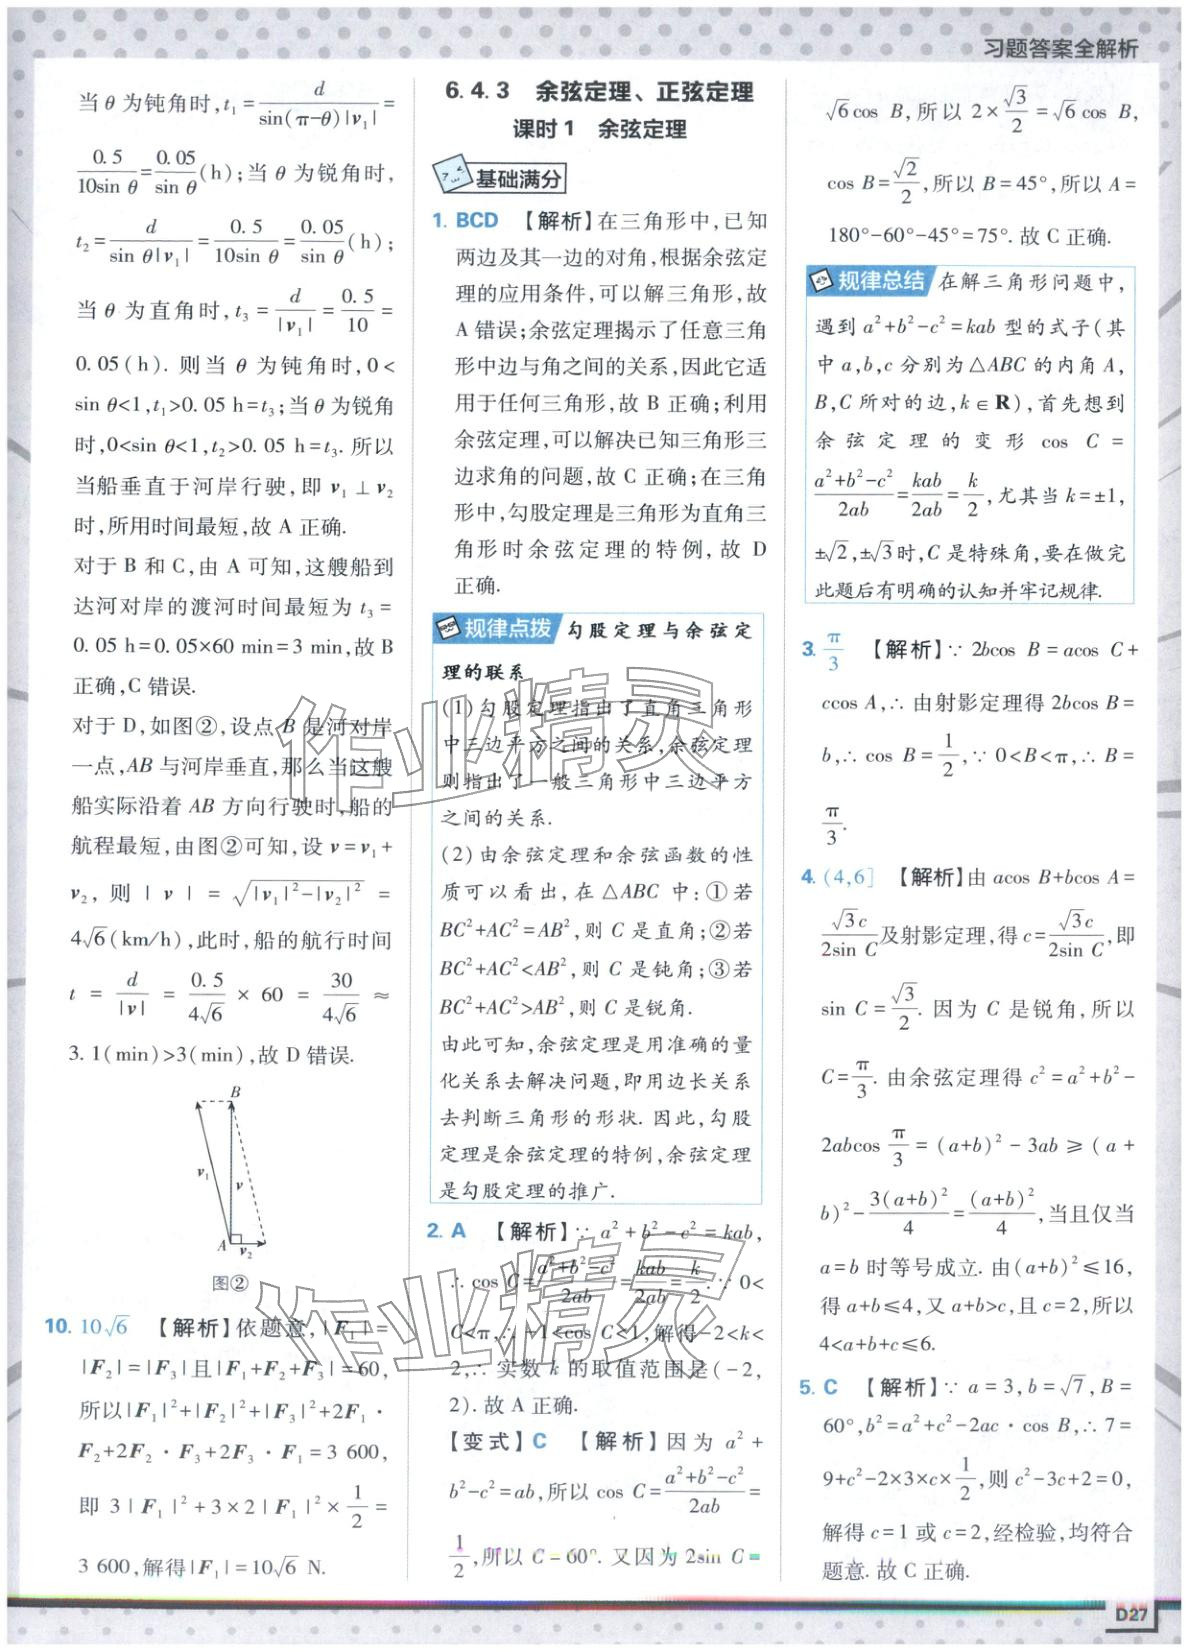 习题答案全解析
当 θ 为钝角时,t₁=d/(sin(π-θ)|v₁|)=
0.5/(10sin θ)=0.05/(sin θ)(h);当 θ 为锐角时,
t₂=d/(sin θ|v₁|)=0.5/(10sin θ)=0.05/(sin θ)(h);
当 θ 为直角时,t₃=d/|v₁|=0.5/10=
0.05(h). 则当 θ 为钝角时,0<
sin θ<1,t₁>0.05 h=t₃;当 θ 为锐角
时,0<sin θ<1,t₂>0.05 h=t₃. 所以
当船垂直于河岸行驶,即 v₁⊥v₂
时,所用时间最短,故 A 正确.
对于 B 和 C,由 A 可知,这艘船到
达河对岸的渡河时间最短为 t₃=
0.05 h=0.05×60 min=3 min,故 B
正确,C 错误.
对于 D,如图②,设点 B 是河对岸
一点,AB 与河岸垂直,那么当这艘
船实际沿着 AB 方向行驶时,船的
航程最短,由图②可知,设 v=v₁+
v₂,则 |v|=√(|v₁|²-|v₂|²)=
4√6(km/h),此时,船的航行时间
t=d/|v|=0.5/(4√6)×60=30/(4√6)≈
3.1(min)>3(min),故 D 错误.
B
v₁
v
A
v₂
图②
10. 10√6 【解析】依题意,|F₁|=
|F₂|=|F₃|且|F₁+F₂+F₃|=60,
所以|F₁|²+|F₂|²+|F₃|²+2F₁·
F₂+2F₂·F₃+2F₃·F₁=3 600,
即 3|F₁|²+3×2|F₁|²×1/2=
3 600,解得|F₁|=10√6 N.
6.4.3 余弦定理、正弦定理
课时1 余弦定理
基础满分
1. BCD 【解析】在三角形中,已知
两边及其一边的对角,根据余弦定
理的应用条件,可以解三角形,故
A 错误;余弦定理揭示了任意三角
形中边与角之间的关系,因此它适
用于任何三角形,故 B 正确;利用
余弦定理,可以解决已知三角形三
边求角的问题,故 C 正确;在三角
形中,勾股定理是三角形为直角三
角形时余弦定理的特例,故 D
正确.
规律点拨 勾股定理与余弦定
理的联系
(1)勾股定理指出了直角三角形
中三边平方之间的关系,余弦定理
则指出了一般三角形中三边平方
之间的关系.
(2)由余弦定理和余弦函数的性
质可以看出,在△ABC 中:①若
BC²+AC²=AB²,则 C 是直角;②若
BC²+AC²<AB²,则 C 是钝角;③若
BC²+AC²>AB²,则 C 是锐角.
由此可知,余弦定理是用准确的量
化关系去解决问题,即用边长关系
去判断三角形的形状. 因此,勾股
定理是余弦定理的特例,余弦定理
是勾股定理的推广.
2. A 【解析】∵ a²+b²-c²=kab,
∴ cos C=(a²+b²-c²)/2ab=kab/2ab=k/2. ∵ 0<
C<π,∴ -1<cos C<1,解得-2<k<
2,∴ 实数 k 的取值范围是(-2,
2). 故 A 正确.
【变式】C 【解析】因为 a²+
b²-c²=ab,所以 cos C=(a²+b²-c²)/2ab=
1/2,所以 C=60°. 又因为 2sin C=
√6cos B,所以 2×√3/2=√6cos B,
cos B=√2/2,所以 B=45°,所以 A=
180°-60°-45°=75°. 故 C 正确.
规律总结 在解三角形问题中,
遇到 a²+b²-c²=kab 型的式子(其
中 a,b,c 分别为△ABC 的内角 A,
B,C 所对的边,k∈R),首先想到
余弦定理的变形 cos C=
(a²+b²-c²)/2ab=kab/2ab=k/2,尤其当 k=±1,
±√2,±√3时,C 是特殊角,要在做完
此题后有明确的认知并牢记规律.
3. π/3 【解析】∵ 2bcos B=acos C+
ccos A,∴ 由射影定理得 2bcos B=
b,∴ cos B=1/2,∵ 0<B<π,∴ B=
π/3.
4. (4,6] 【解析】由 acos B+bcos A=
√3c/(2sin C)及射影定理,得 c=√3c/(2sin C),即
sin C=√3/2. 因为 C 是锐角,所以
C=π/3. 由余弦定理得 c²=a²+b²-
2abcos π/3=(a+b)²-3ab≥(a+
b)²-3(a+b)²/4=(a+b)²/4,当且仅当
a=b 时等号成立. 由(a+b)²≤16,
得 a+b≤4,又 a+b>c,且 c=2,所以
4<a+b+c≤6.
5. C 【解析】∵ a=3,b=√7,B=
60°,b²=a²+c²-2ac·cos B,∴ 7=
9+c²-2×3×c×1/2,则 c²-3c+2=0,
解得 c=1 或 c=2,经检验,均符合
题意. 故 C 正确.
D27
作业精灵
作业精灵